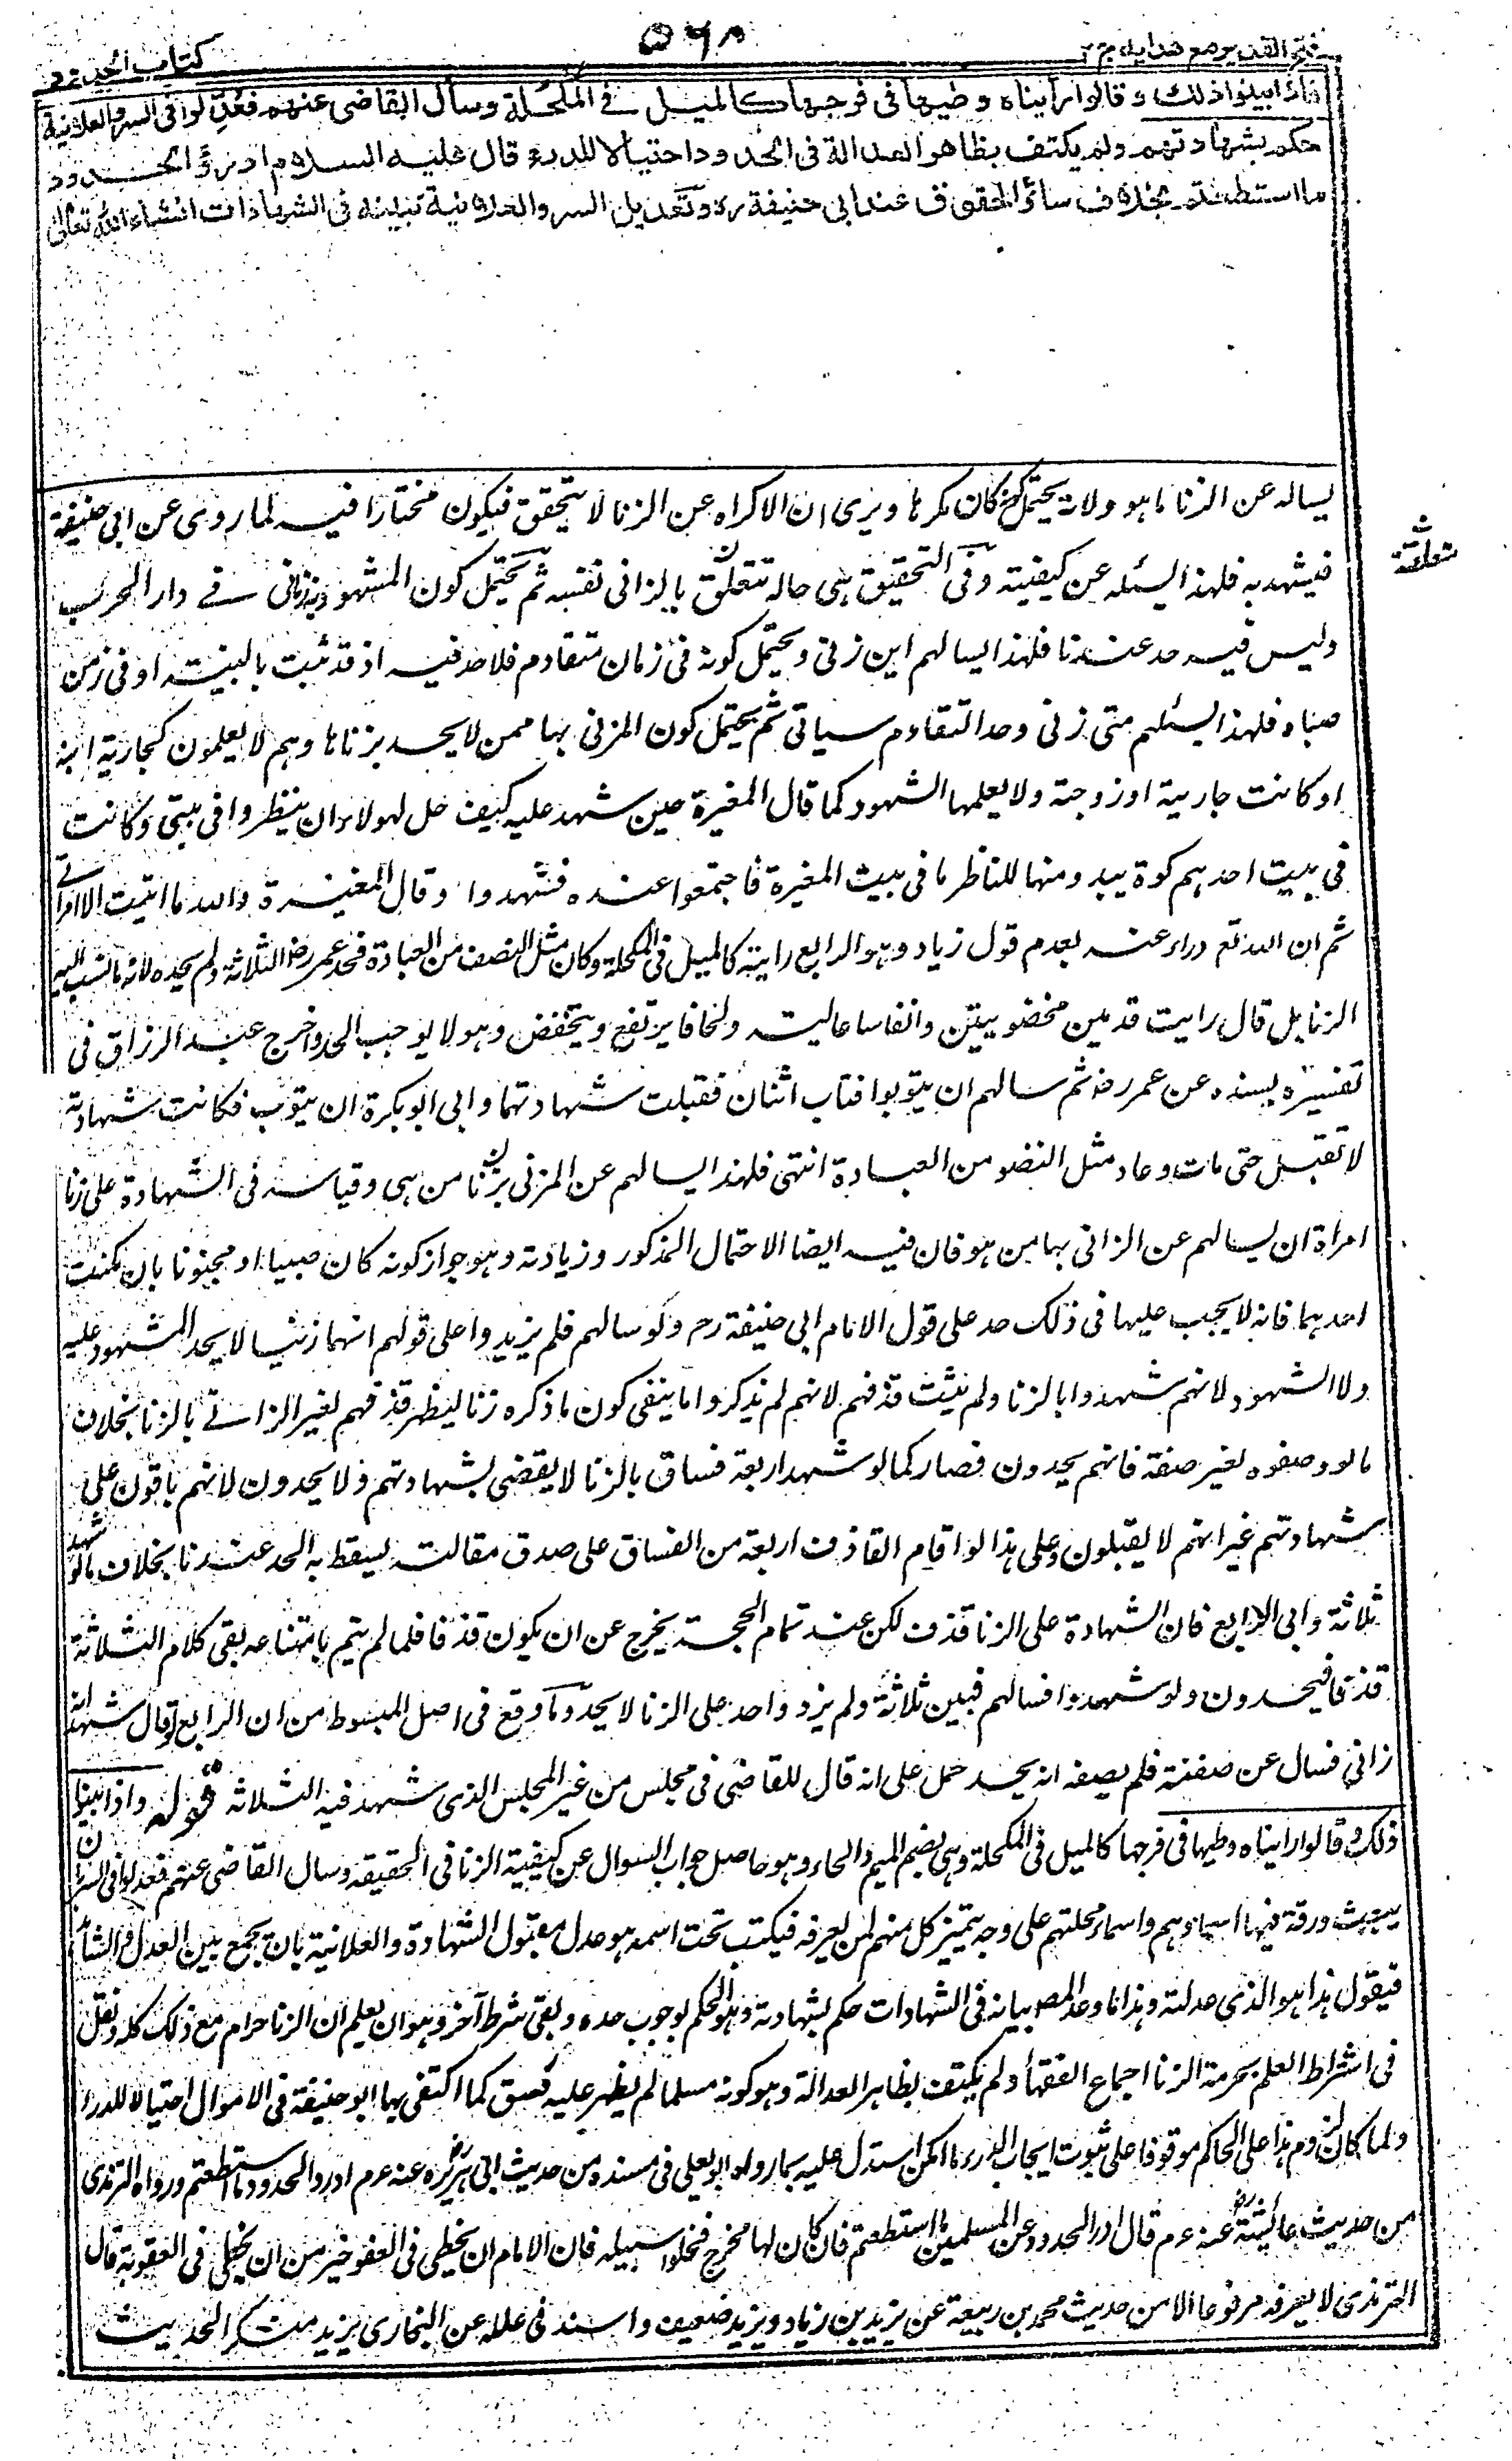 فتح القدير مع هدايه ج ٢
٥٦٨
كتاب الحدود
فاذا بينوا ذلك و قالوا رأيناه وطيها فى فرجها كالميل فى المكحُلة وسأل القاضى عنهم فعُدِّلوا فى السر والعلانية
حكم بشهادتهم ولم يكتف بظاهر العدالة فى الحدود احتيالا للدرء قال عليه السلام ادرؤا الحدود
ما استطعتم بخلاف سائر الحقوق عند ابى حنيفة ره وتعديل السر والعلانية نبينه فى الشهادات انشاء الله تعالى
يساله عن الزنا ما هو ولانه يحتمل كونه كان مكرها ويرى ان الاكراه عن الزنا لا يتحقق فيكون مختارا فيه لما روى عن ابى حنيفة
متعلقة
فيشهد به فلهذا يسئله عن كيفيته وفى التحقيق هى حالة تتعلق بالزانى نفسه ثم يحتمل كون المشهود به زنى فى دار الحرب
وليس فيه حد عندنا فلهذا يسالهم اين زنى ويحتمل كونه فى زمان متقادم فلا حد فيه اذ قد ثبت بالبينة او فى زمن
صباه فلهذا يسئلهم متى زنى وحد التقادم سياتى ثم يحتمل كون المزنى بها ممن لا يحد بزناها وهم لا يعلمون كجارية ابنه
او كانت جارية او زوجته ولا يعلمها الشهود كما قال المغيرة حين شهد عليه كيف حل لهولاء ان ينظروا فى بيتى وكانت
فى بيت احدهم كوة يبدو منها للناظر ما فى بيت المغيرة فاجتمعوا عنده فشهدوا وقال المغيرة والله ما اتيت الا امرأتى
ثم ان الله تع دراء عنه بعدم قول زياد وهو الرابع رايته كالميل فى المكحلة وكان مثل النصف من العبادة فحد عمر رض الثلاثة ولم يحده لانه ما نسب اليه
الزنا بل قال رايت قدمين مخضوبيتن وانفاسا عالية ولحافا يرتفع ويخفض وهو لا يوجب الحد واخرج عبد الرزاق فى
تفسيره بسنده عن عمر رض ثم سالهم ان يتوبوا فتاب اثنان فقبلت شهادتهما وابى ابو بكرة ان يتوب فكانت شهادته
لا تقبل حتى مات وعاد مثل النضو من العبادة انتهى فلهذا يسالهم عن المزنى بها من هى وقياسه فى الشهادة على زنا
امراة ان يسالهم عن الزانى بها من هو فان فيه ايضا الاحتمال المذكور وزيادة وهو جواز كونه كان صبيا او مجنونا بان مكنت
احدهما فانه لا يجب عليها فى ذلك حد على قول الامام ابى حنيفة رح ولو سالهم فلم يزيدوا على قولهم انهما زنيا لا يحد المشهود عليه
ولا الشهود لانهم شهدوا بالزنا ولم يثبت قذفهم لانهم لم يذكروا ما ينفى كون ما ذكره زنا ليظهر قذفهم لغير الزانى بالزنا بخلاف
ما لو وصفوه لغير صفته فانهم يحدون فصار كما لو شهد اربعة فساق بالزنا لا يقضى بشهادتهم ولا يحدون لانهم باقون على
شهادتهم غير انهم لا يقبلون وعلى هذا لو اقام القاذف اربعة من الفساق على صدق مقالته يسقط به الحد عندنا بخلاف ما لو شهد
ثلاثة وابى الرابع فان الشهادة على الزنا قذف لكن عند تمام الحجة يخرج عن ان يكون قذفا فلما لم يتم بامتناعه بقى كلام الثلاثة
قذفا فيحدون ولو شهدوا فسالهم فبين ثلاثة ولم يزد واحد على الزنا لا يحد وما وقع فى اصل المبسوط من ان الرابع لو قال شهد انه
زانى فسال عن صفته فلم يصفه انه يحد حمل على انه قال للقاضى فى مجلس من غير المجلس الذى شهد فيه الثلاثة قوله واذا بينوا
ذلك وقالوا رايناه وطيها فى فرجها كالميل فى المكحلة وهى بضم الميم والحاء وهو حاصل جواب السوال عن كيفية الزنا فى الحقيقة وسال القاضى عنهم فعدلوا فى السر بان
يبعث ورقة فيها اسماؤهم واسماء محلتهم على وجه يتميز كل منهم لمن يعرفه فيكتب تحت اسمه هو عدل مقبول الشهادة والعلانية بان يجمع بين العدل والشاهد
فيقول هذا هو الذى عدلته وهذا ما وعد المص بيانه فى الشهادات حكم بشهادته وهو الحكم لوجوب حده وبقى شرط آخر وهو ان يعلم ان الزنا حرام مع ذلك كله ونقل
فى اشتراط العلم بحرمة الزنا اجماع الفقهاء ولم يكتف بظاهر العدالة وهو كونه مسلما لم يظهر عليه فسق كما اكتفى بها ابو حنيفة فى الاموال احتيالا للدرا
ولما كان لزوم هذا على الحاكم موقوفا على ثبوت ايجاب الدرء ما امكن استدل عليه بما رواه ابو يعلى فى مسنده من حديث ابى هريرة رض عنه عم ادرؤا الحدود ما استطعتم ورواه الترمذى
من حديث عائشة رض عنه عم قال ادرؤا الحدود عن المسلمين ما استطعتم فان كان لها مخرج فخلوا سبيله فان الامام ان يخطى فى العفو خير من ان يخطى فى العقوبة قال
الترمذى لا يعرفه مرفوعا الا من حديث محمد بن ربيعة عن يزيد بن زياد ويزيد ضعيف واسند فى علله عن البخارى يزيد منكر الحديث